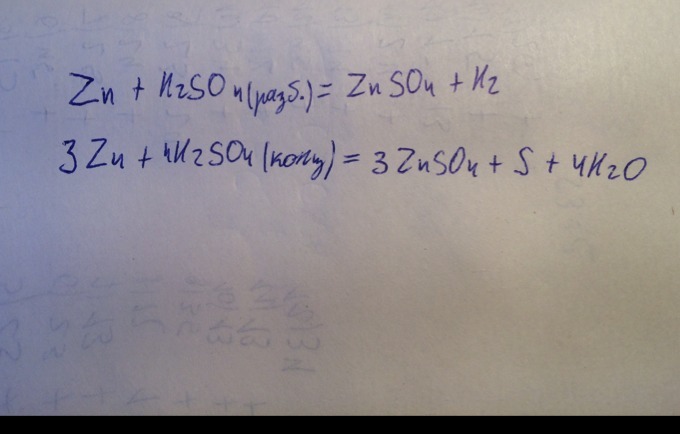 Zn + H2SO4(разб.) = ZnSO4 + H2
3Zn + 4H2SO4(конц) = 3ZnSO4 + S + 4H2O